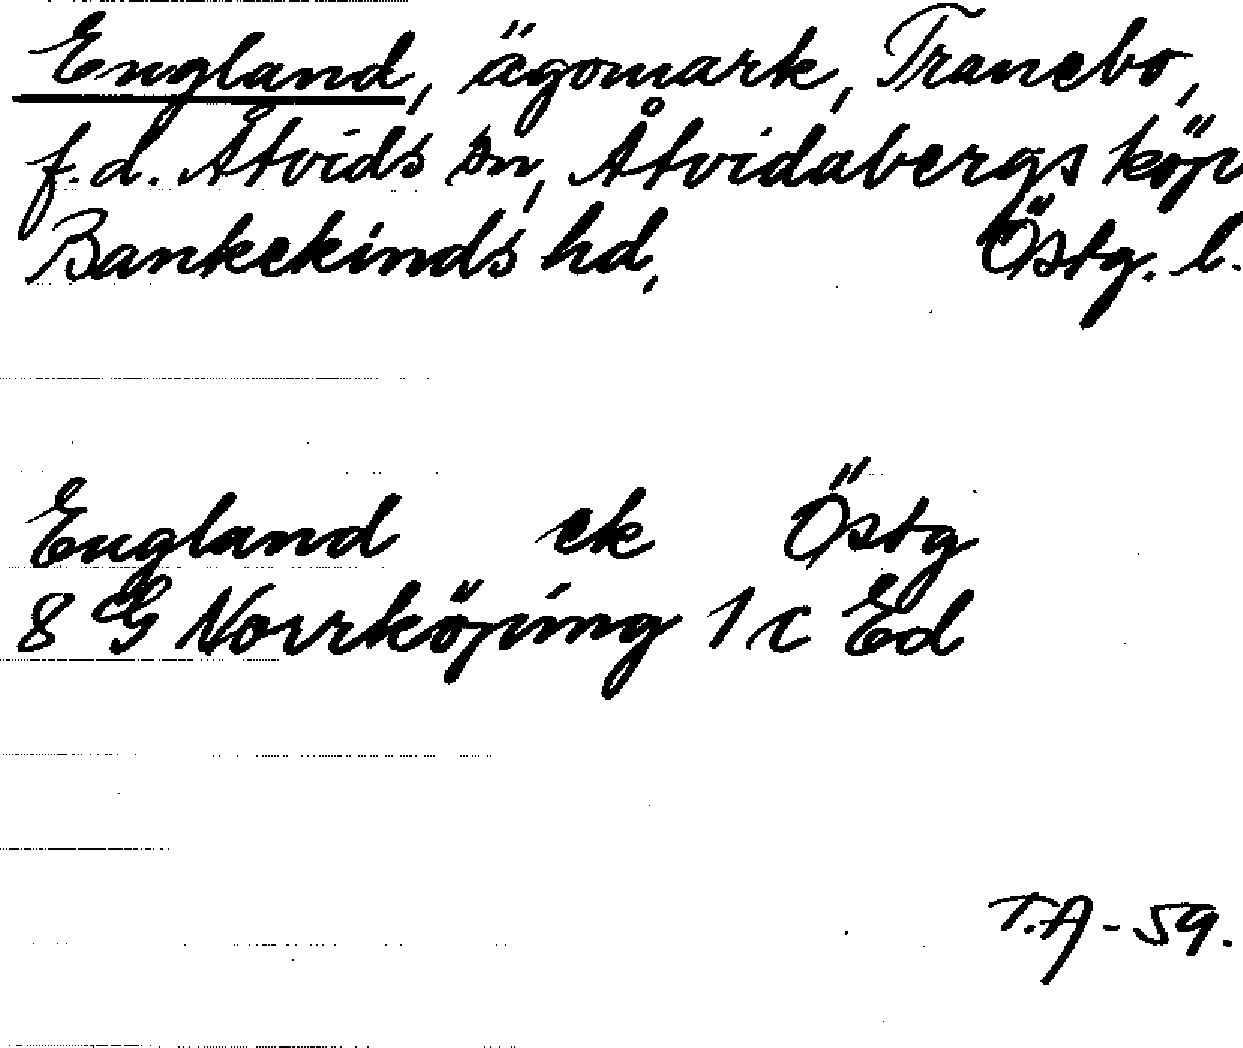 England, ägomark, Tranebo,
f.d. Åtvids sn, Åtvidabergs köp
Bankekinds hd, Östg. l.
England ek Östg
8 G Norrköping 1 c Ed
T.A - 59.